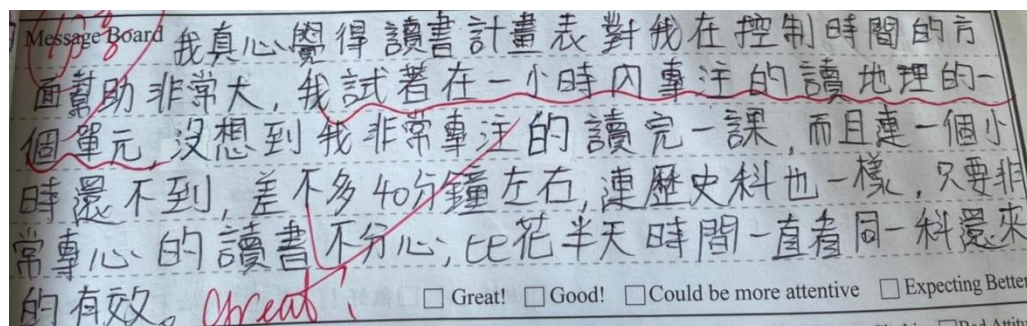 Message Board 我真心覺得讀書計畫表對我在控制時間的方
面幫助非常大,我試著在一小時內專注的讀地理的一
個單元,沒想到我非常專注的讀完一課,而且連一個小
時還不到,差不多40分鐘左右,連歷史科也一樣,只要非
常專心的讀書不分心,比花半天時間一直看同一科還來
的有效。Great!
□ Great! □ Good! □ Could be more attentive □ Expecting Better